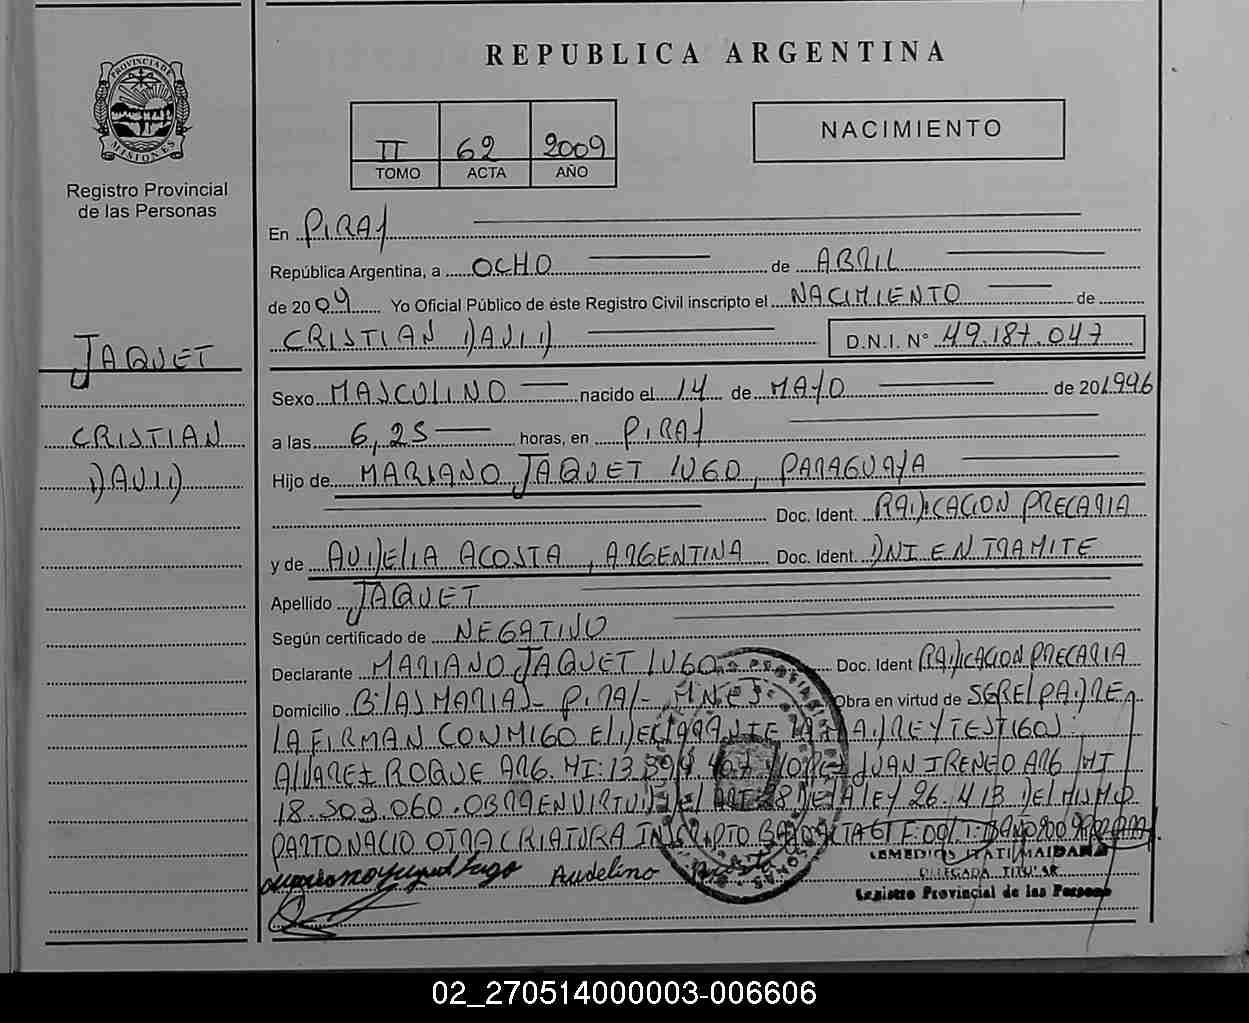 REPUBLICA ARGENTINA
PROVINCIA DE
MISIONES
Registro Provincial
de las Personas
II 62 2009
TOMO ACTA AÑO
NACIMIENTO
En PIRAY
República Argentina, a OCHO de ABRIL
de 2009 Yo Oficial Público de éste Registro Civil inscripto el NACIMIENTO de
CRISTIAN DAVID D.N.I. N° 49.187.047
JAQUET
CRISTIAN
DAVID
Sexo MASCULINO nacido el 14 de MAYO de 20 1996
a las 6,25 horas, en PIRAY
Hijo de MARIANO JAQUET LUGO, PARAGUAYA
Doc. Ident. RADICACION PRECARIA
y de AUDELIA ACOSTA, ARGENTINA Doc. Ident. DNI EN TRAMITE
Apellido JAQUET
Según certificado de NEGATIVO
Declarante MARIANO JAQUET LUGO Doc. Ident RADICACION PRECARIA
Domicilio Bº LAS MARIAS - PIRAY - MNES Obra en virtud de SER EL PADRE
LA FIRMAN CONMIGO EL DECLARANTE LA MADRE Y TESTIGOS:
ALVAREZ ROQUE ARG. MI: 13.394.407 LOPEZ JUAN IRENEO ARG MI
18.503.060. OBRA EN VIRTUD DEL ART. 28 DE LA LEY 26.413 DEL MISMO
PARTO NACIO OTRA CRIATURA INSCRIPTO BAJO ACTA 61
Mariano Jaquet Lugo Audelino
REMEDIOS ITATI MAIDANA
DELEGADA TITULAR
Registro Provincial de las Personas
02_270514000003-006606